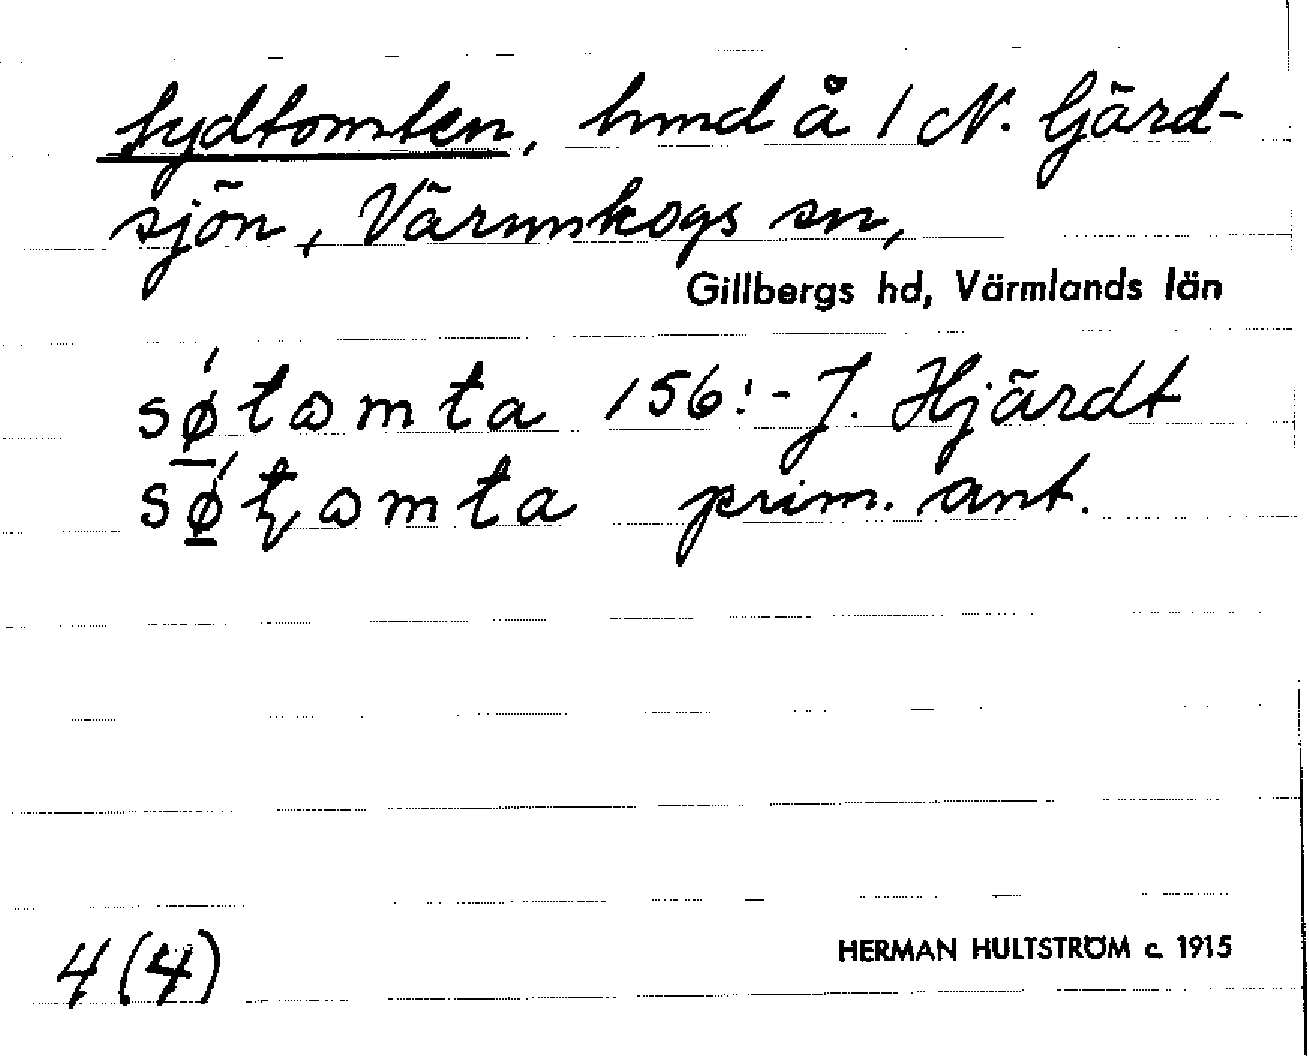 Sydtomten, hmd å 1 N. Gärd-
sjön, Värmskogs sn,
Gillbergs hd, Värmlands län
sǿ̲tɷmta 156:- J. Hjärdt
sǿ̲ƫɷmta prim. ant.
4 (4)
HERMAN HULTSTRÖM c. 1915